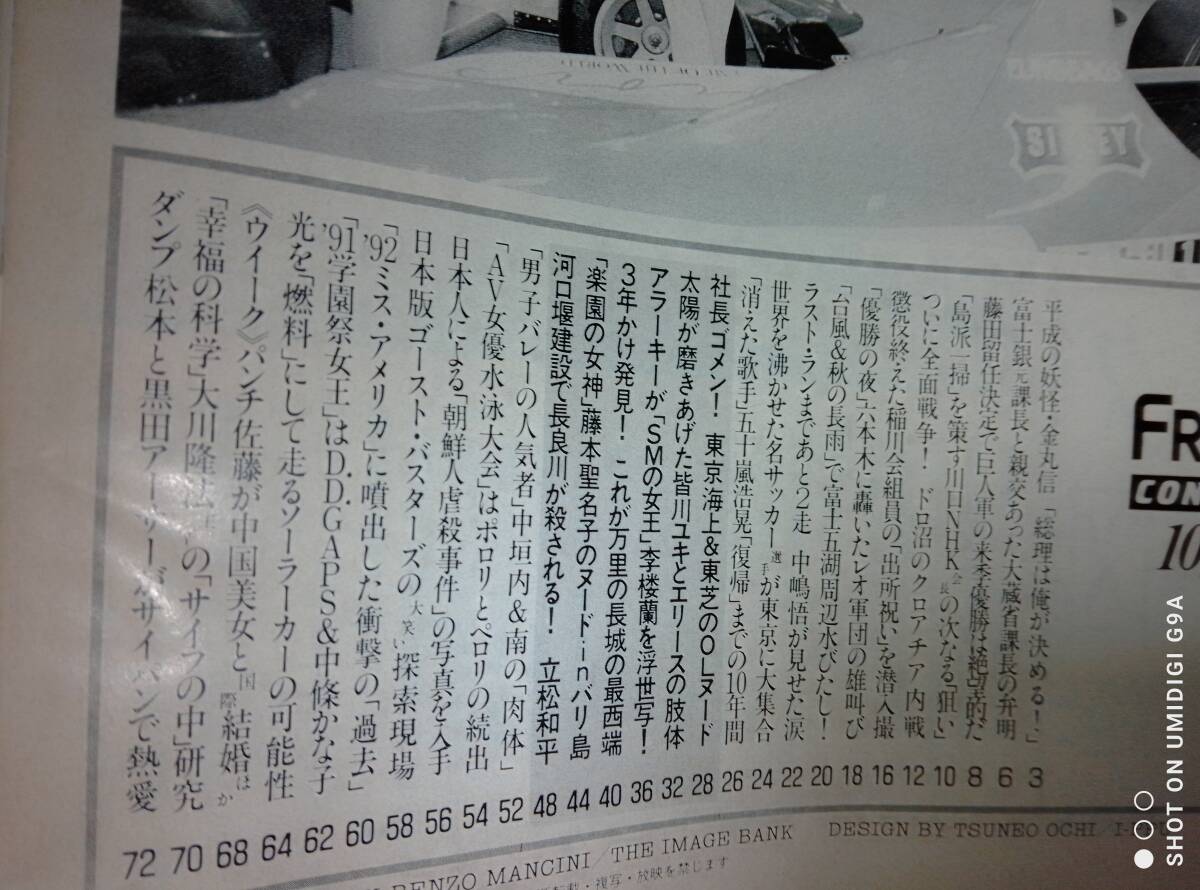 FR
CON
10
SI EY
平成の妖怪・金丸信「総理は俺が決める!」 3
富士銀元課長と親交あった大蔵省課長の弁明 6
藤田留任決定で巨人軍の来季優勝は絶望的だ 8
「島派一掃」を策す川口NHK会長の次なる「狙い」 10
ついに全面戦争! ドロ沼のクロアチア内戦 12
懲役終えた稲川会組員の「出所祝い」を潜入撮 16
「優勝の夜」六本木に轟いたレオ軍団の雄叫び 18
「台風&秋の長雨」で富士五湖周辺水びたし! 20
ラスト・ランまであと2走 中嶋悟が見せた涙 22
世界を沸かせた名サッカー選手が東京に大集合 24
「消えた歌手」五十嵐浩晃「復帰」までの10年間 26
社長ゴメン! 東京海上&東芝のOLヌード 28
太陽が磨きあげた皆川ユキとエリースの肢体 32
アラーキーが「SMの女王」李楼蘭を浮世写! 36
3年かけ発見! これが万里の長城の最西端 40
「楽園の女神」藤本聖名子のヌード・inバリ島 44
河口堰建設で長良川が殺される! 立松和平 48
「男子バレーの人気者」中垣内&南の「肉体」 52
「AV女優水泳大会」はポロリとペロリの続出 54
日本人による「朝鮮人虐殺事件」の写真を入手 56
日本版ゴースト・バスターズの大笑い探索現場 58
「'92ミス・アメリカ」に噴出した衝撃の「過去」 60
「'91学園祭女王」はD.D.GAPS&中條かな子 62
光を「燃料」にして走るソーラーカーの可能性 64
《ウイーク》パンチ佐藤が中国美女と国際結婚はか 68
「幸福の科学」大川隆法の「サイフの中」研究 70
ダンプ松本と黒田アーサーがサイパンで熱愛 72
RENZO MANCINI/THE IMAGE BANK
DESIGN BY TSUNEO OCHI/
転載・複写・放映を禁じます
SHOT ON UMIDIGI G9A